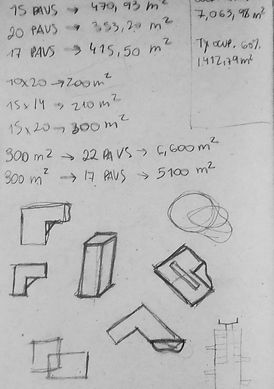 15 PAVS → 470,93 m²
20 PAVS → 353,20 m²
17 PAVS → 415,50 m²
10x20 → 200 m²
15x14 → 210 m²
15x20 → 300 m²
300 m² → 22 PAVS → 6,600 m²
300 m² → 17 PAVS → 5100 m²
7,063,98 m²
TX OCUP. 60%
1,412,79 m²